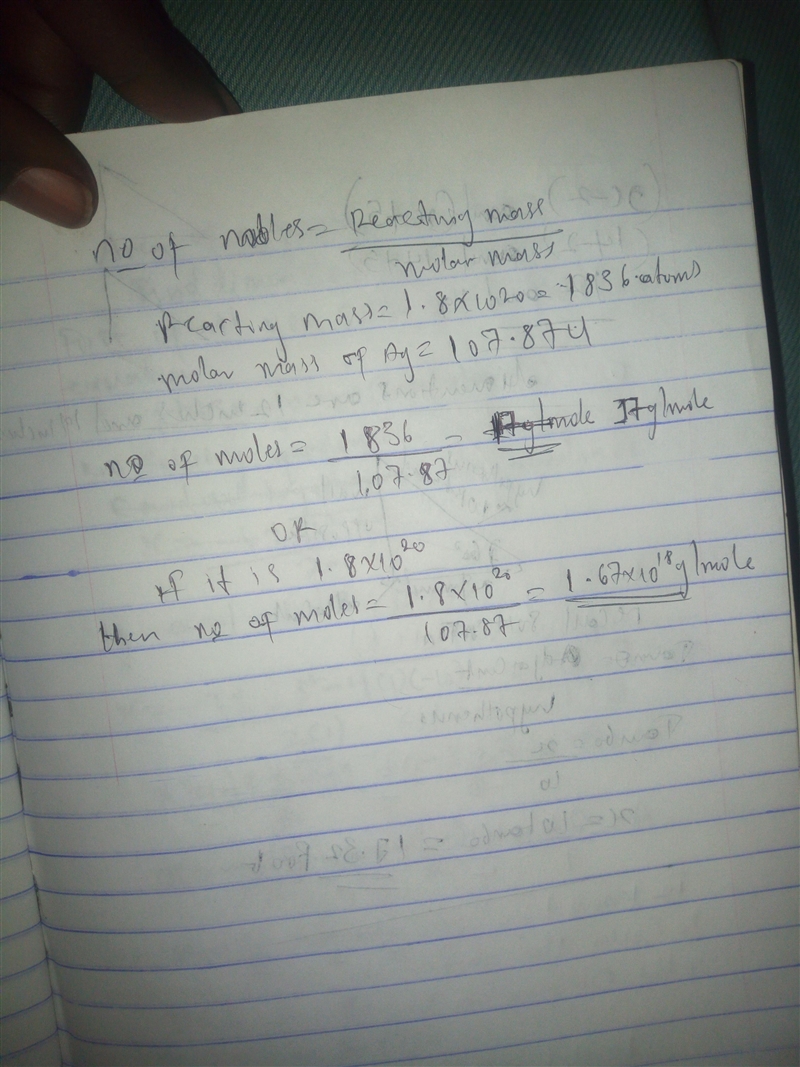 no of moles = Reacting mass
molar mass
Reacting mass = 1.8x1020 = 1836 atoms
molar mass of Ag = 107.87u
no of moles = 1836 = 17g/mole 17g/mole
107.87
OR
if it is 1.8x10²⁰
then no of moles = 1.8x10²⁰ = 1.67x10¹⁸g/mole
107.87